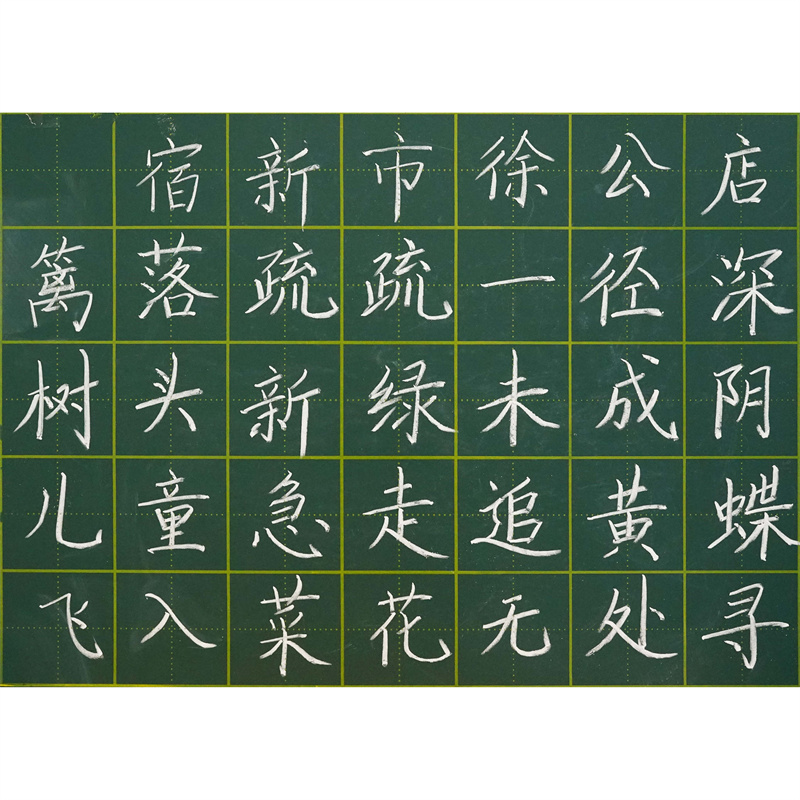 宿新市徐公店
篱落疏疏一径深
树头新绿未成阴
儿童急走追黄蝶
飞入菜花无处寻